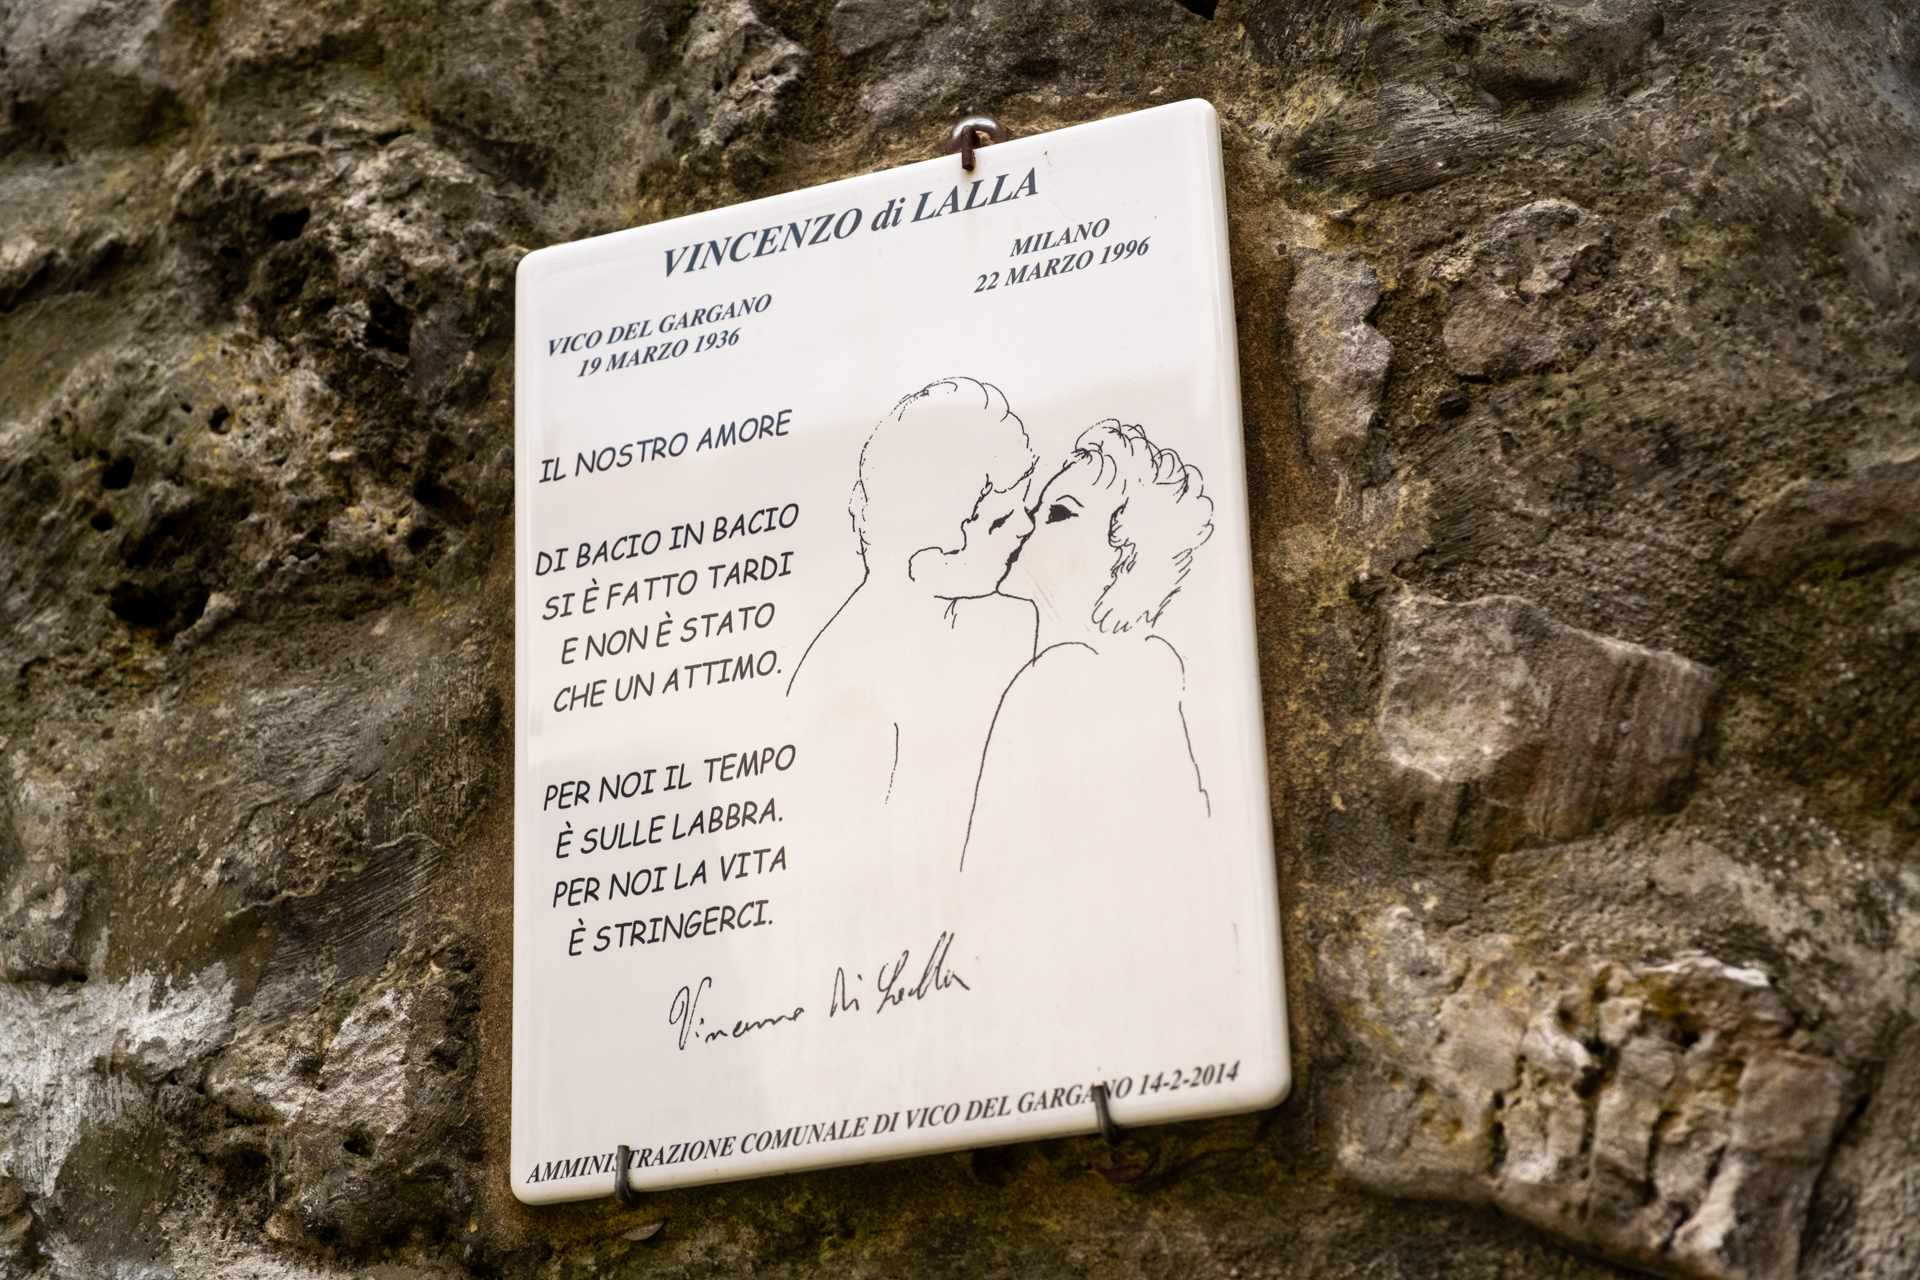 VINCENZO di LALLA
VICO DEL GARGANO
19 MARZO 1936
MILANO
22 MARZO 1996
IL NOSTRO AMORE
DI BACIO IN BACIO
SI È FATTO TARDI
E NON È STATO
CHE UN ATTIMO.
PER NOI IL TEMPO
È SULLE LABBRA.
PER NOI LA VITA
È STRINGERCI.
Vincenzo di Lalla
AMMINISTRAZIONE COMUNALE DI VICO DEL GARGANO 14-2-2014